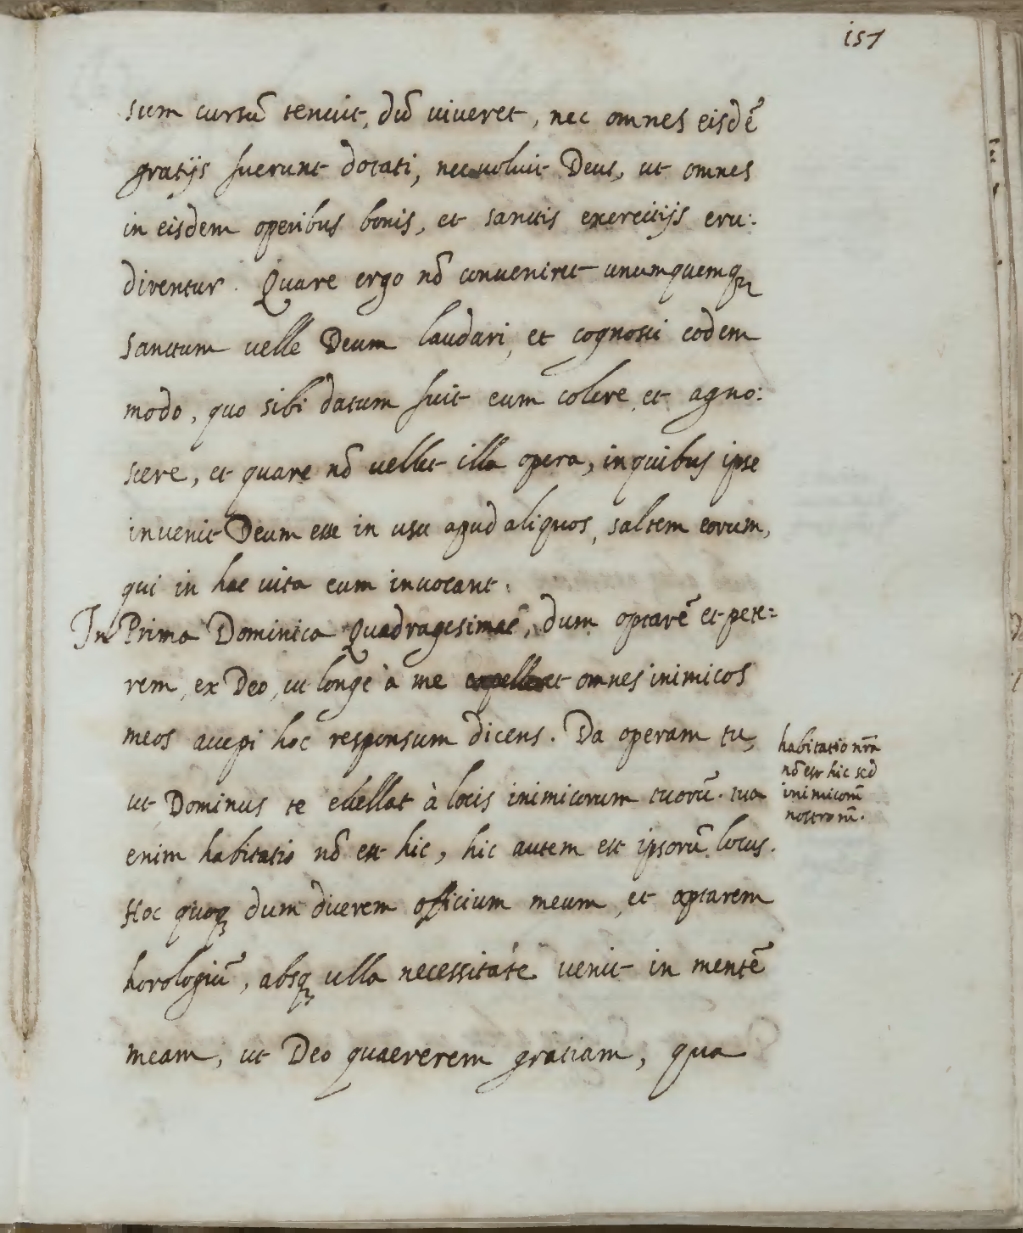 157
sum cursū tenuit, dū viveret, nec omnes eisdē
gratijs fuerunt dotati, nec voluit Deus, ut omnes
in eisdem operibus bonis, et sanctis exercitijs eru:
direntur. Quare ergo nō conveniret unumquemq
Sanctum velle Deum laudari, et cognosci eodem
modo, quo sibi datum fuit eum colere, et agno:
scere, et quare nō vellet illa opera, in quibus ipse
invenit Deum esse in usu apud aliquos, saltem eorum,
qui in hac vita eum invocant.
In Prima Dominica Quadragesimae, dum optarē et pete=
rem, ex Deo, ut longè à me expelleret omnes inimicos
meos accepi hoc responsum dicens. Da operam tu,
ut Dominus te evellat à locis inimicorum tuorū. tua
enim habitatio nō est hic, hic autem est ipsorū locus.
habitatio nr̄a
nō est hic sed
inimicorū
nostrorū.
Hoc quoq dum dicerem officium meum, et optarem
horologiū, absq ulla necessitate venit in mentē
meam, ut Deo quaererem gratiam, qua